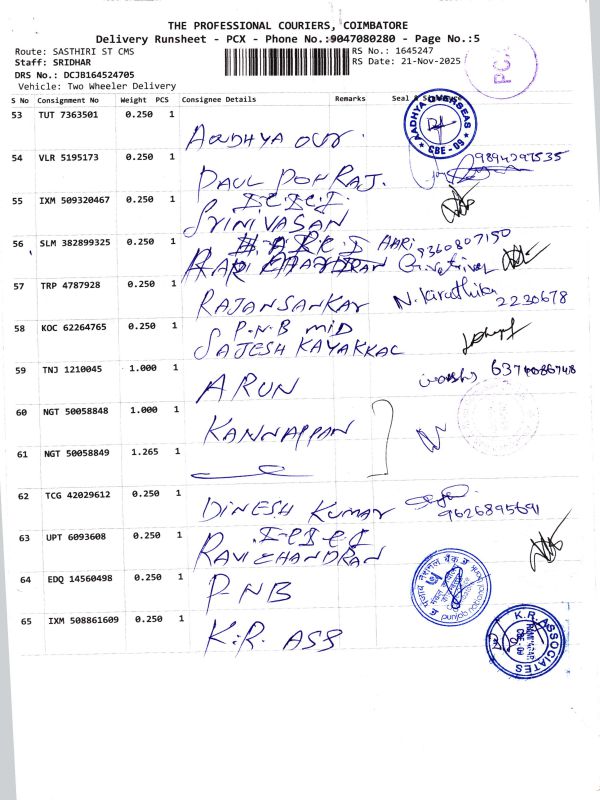 THE PROFESSIONAL COURIERS, COIMBATORE
Delivery Runsheet - PCX - Phone No.:9047080280 - Page No.:5
Route: SASTHIRI ST CMS
RS No.: 1645247
Staff: SRIDHAR
RS Date: 21-Nov-2025
DRS No.: DCJB164524705
Vehicle: Two Wheeler Delivery
PCX
S No Consignment No Weight PCS Consignee Details Remarks Seal &
53 TUT 7363501 0.250 1
AADHYA OVERSEAS
CBE - 09
54 VLR 5195173 0.250 1 PAUL PON RAJ. 9894297535
55 IXM 509320467 0.250 1 I.C.I.C.I
SRINIVASAN
56 SLM 382899325 0.250 1 HARI 9360807150
57 TRP 4787928 0.250 1 RAJANSANKAR N. Karuthika
2230678
58 KOC 62264765 0.250 1 P.N.B MID
SAJESH KAYAKKAL
59 TNJ 1210045 1.000 1 ARUN
60 NGT 50058848 1.000 1 KANNAPPAN
61 NGT 50058849 1.265 1
62 TCG 42029612 0.250 1 DINESH KUMAR 9626895691
63 UPT 6093608 0.250 1 I.C.I.C.I
RAVICHANDRAN
64 EDQ 14560498 0.250 1 PNB
punjab national bank
65 IXM 508861609 0.250 1 K.R. ASS
K.R. ASSOCIATES
CBE-09